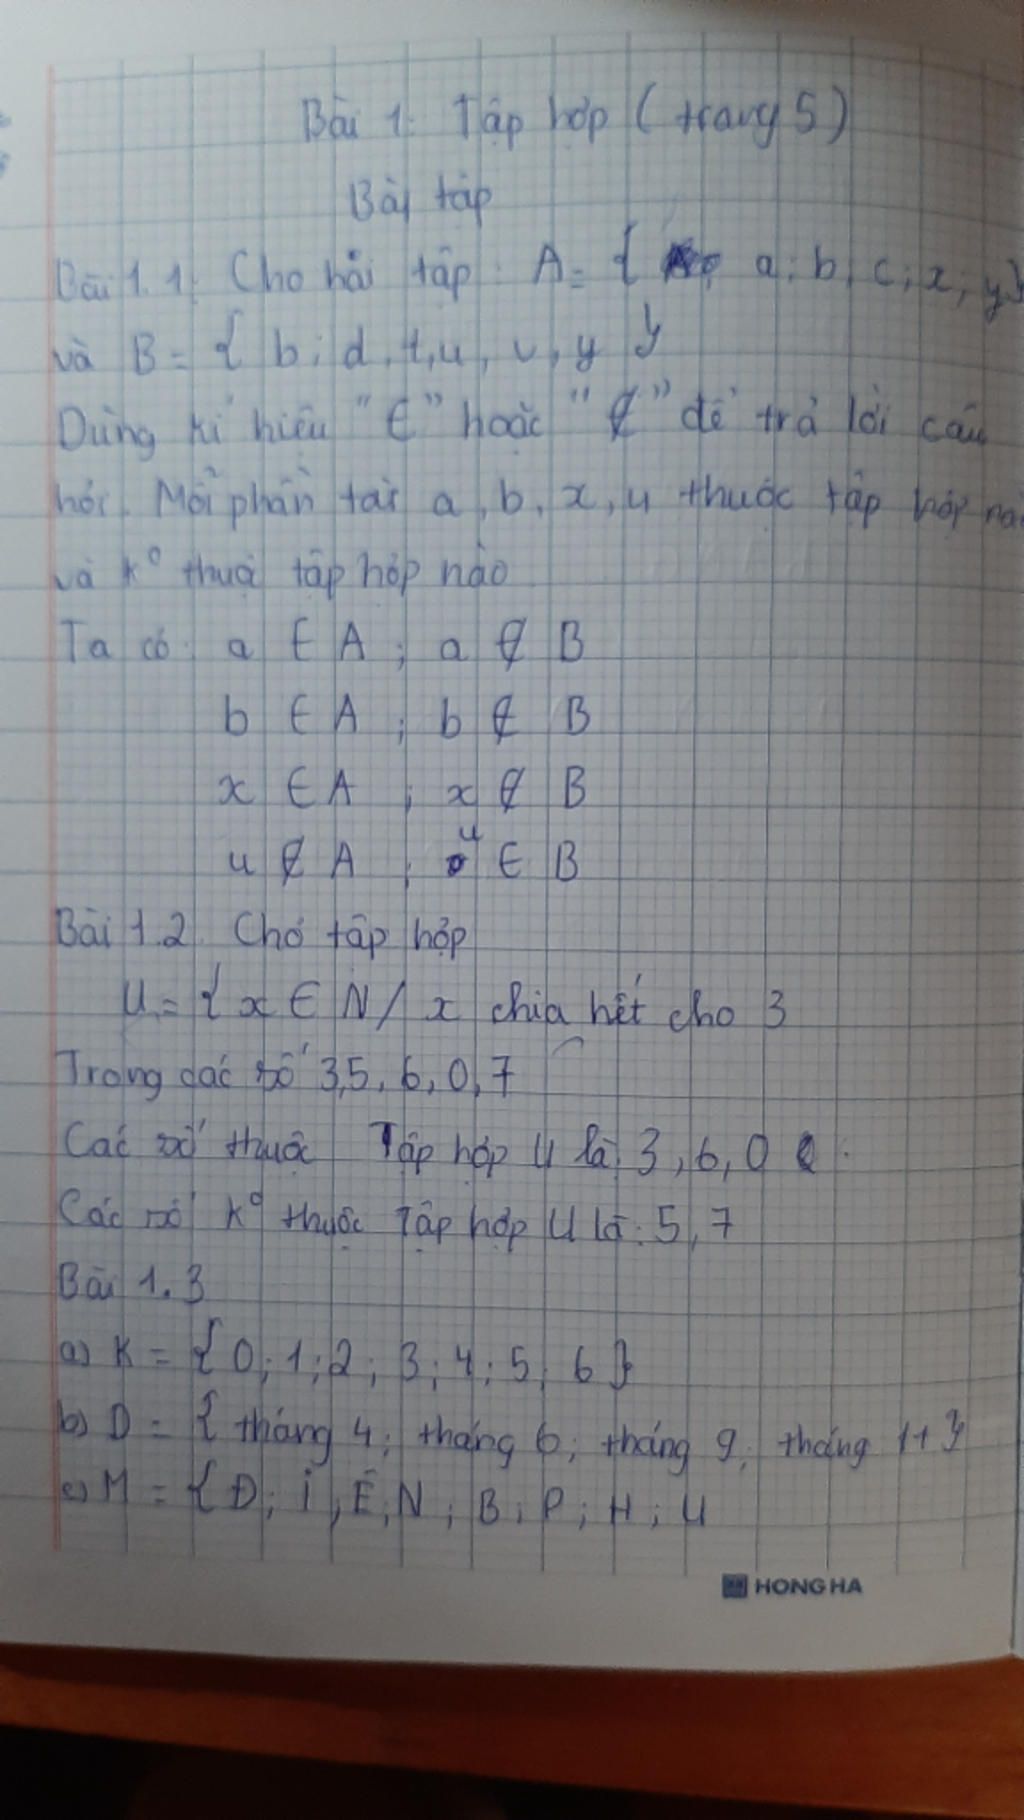 Bài 1. Tập hợp ( trang 5 )
Bài tập
Bài 1.1. Cho hai tập : A = { a; b, c; x; y}
và B = { b; d, t, u, v, y }
Dùng kí hiệu "∈" hoặc "∉" để trả lời câu
hỏi. Mỗi phần tử a, b, x, u thuộc tập hợp nào
và k° thuộc tập hợp nào
Ta có : a ∈ A ; a ∉ B
b ∈ A ; b ∉ B
x ∈ A ; x ∉ B
u ∉ A ; u ∈ B
Bài 1.2. Cho tập hợp
U = { x ∈ N / x chia hết cho 3
Trong các số 3,5, 6, 0, 7
Các số thuộc Tập hợp U là: 3, 6, 0
Các số k° thuộc Tập hợp U là: 5, 7
Bài 1.3
a) K = { 0; 1; 2; 3; 4; 5; 6 }
b) D = { tháng 4; tháng 6; tháng 9; tháng 11 }
c) M = { Đ; I, Ê; N; B; P; H; U
HONG HA